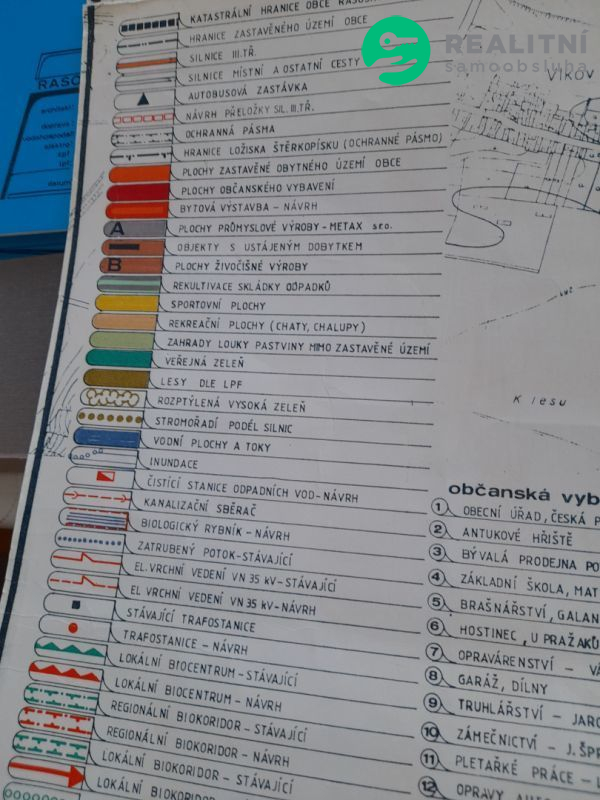 REALITNÍ
samoobsluha
KATASTRÁLNÍ HRANICE OBCE
HRANICE ZASTAVĚNÉHO ÚZEMÍ OBCE
SILNICE III.TŘ.
SILNICE MÍSTNÍ A OSTATNÍ CESTY
AUTOBUSOVÁ ZASTÁVKA
NÁVRH PŘELOŽKY SIL. III.TŘ.
OCHRANNÁ PÁSMA
HRANICE LOŽISKA ŠTĚRKOPÍSKU (OCHRANNÉ PÁSMO)
PLOCHY ZASTAVĚNÉ OBYTNÉHO ÚZEMÍ OBCE
PLOCHY OBČANSKÉHO VYBAVENÍ
BYTOVÁ VÝSTAVBA - NÁVRH
A PLOCHY PRŮMYSLOVÉ VÝROBY - METAX s.r.o.
OBJEKTY S USTÁJENÝM DOBYTKEM
B PLOCHY ŽIVOČIŠNÉ VÝROBY
REKULTIVACE SKLÁDKY ODPADKŮ
SPORTOVNÍ PLOCHY
REKREAČNÍ PLOCHY (CHATY, CHALUPY)
ZAHRADY LOUKY PASTVINY MIMO ZASTAVĚNÉ ÚZEMÍ
VEŘEJNÁ ZELEŇ
LESY DLE LPF
ROZPTÝLENÁ VYSOKÁ ZELEŇ
STROMOŘADÍ PODÉL SILNIC
VODNÍ PLOCHY A TOKY
INUNDACE
ČISTÍCÍ STANICE ODPADNÍCH VOD - NÁVRH
KANALIZAČNÍ SBĚRAČ
BIOLOGICKÝ RYBNÍK - NÁVRH
ZATRUBENÝ POTOK - STÁVAJÍCÍ
EL. VRCHNÍ VEDENÍ VN 35 kV - STÁVAJÍCÍ
EL. VRCHNÍ VEDENÍ VN 35 kV - NÁVRH
STÁVAJÍCÍ TRAFOSTANICE
TRAFOSTANICE - NÁVRH
LOKÁLNÍ BIOCENTRUM - STÁVAJÍCÍ
LOKÁLNÍ BIOCENTRUM - NÁVRH
REGIONÁLNÍ BIOKORIDOR - STÁVAJÍCÍ
REGIONÁLNÍ BIOKORIDOR - NÁVRH
LOKÁLNÍ BIOKORIDOR - STÁVAJÍCÍ
LOKÁLNÍ BIOKORIDOR - NÁVRH
VLKOV
K lesu
občanská vyb
1 OBECNÍ ÚŘAD, ČESKÁ P
2 ANTUKOVÉ HŘIŠTĚ
3 BÝVALÁ PRODEJNA PO
4 ZÁKLADNÍ ŠKOLA, MAT
5 BRAŠNÁŘSTVÍ, GALAN
6 HOSTINEC „U PRAŽÁKŮ
7 OPRAVÁRENSTVÍ - VÁ
8 GARÁŽ, DÍLNY
9 TRUHLÁŘSTVÍ - JARO
10 ZÁMEČNICTVÍ - J. ŠPR
11 PLETAŘKÉ PRÁCE - L
12 OPRAVY